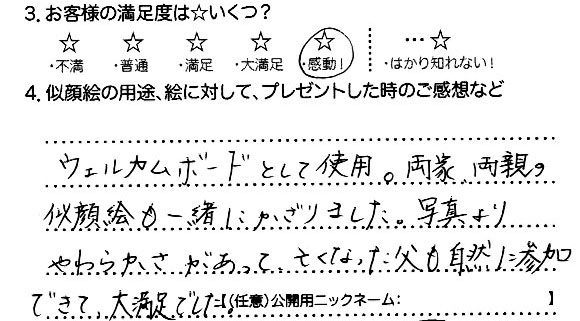 3. お客様の満足度は☆いくつ?
☆ ☆ ☆ ☆ ☆ …☆
・不満 ・普通 ・満足 ・大満足 ・感動! ・はかり知れない!
4. 似顔絵の用途、絵に対して、プレゼントした時のご感想など
ウェルカムボードとして使用。両家、両親の
似顔絵も一緒にかざりました。写真より
やわらかさがあって、亡くなった父も自然に参加
できて、大満足でした。【(任意)公開用ニックネーム: 】